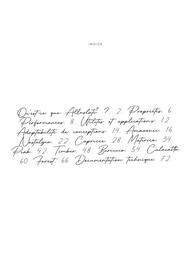 INDICE
Qu'est-ce que Allurlate ? 2 Propriétés 6
Performances 8 Utilités et applications 12
Adaptabilité de conceptions 14 Amazonic 16
Nostalgia 22 Capraia 28 Materica 34
Pink 42 Timber 48 Borocco 54 Calacatta
60 Forest 66 Documentation technique 72